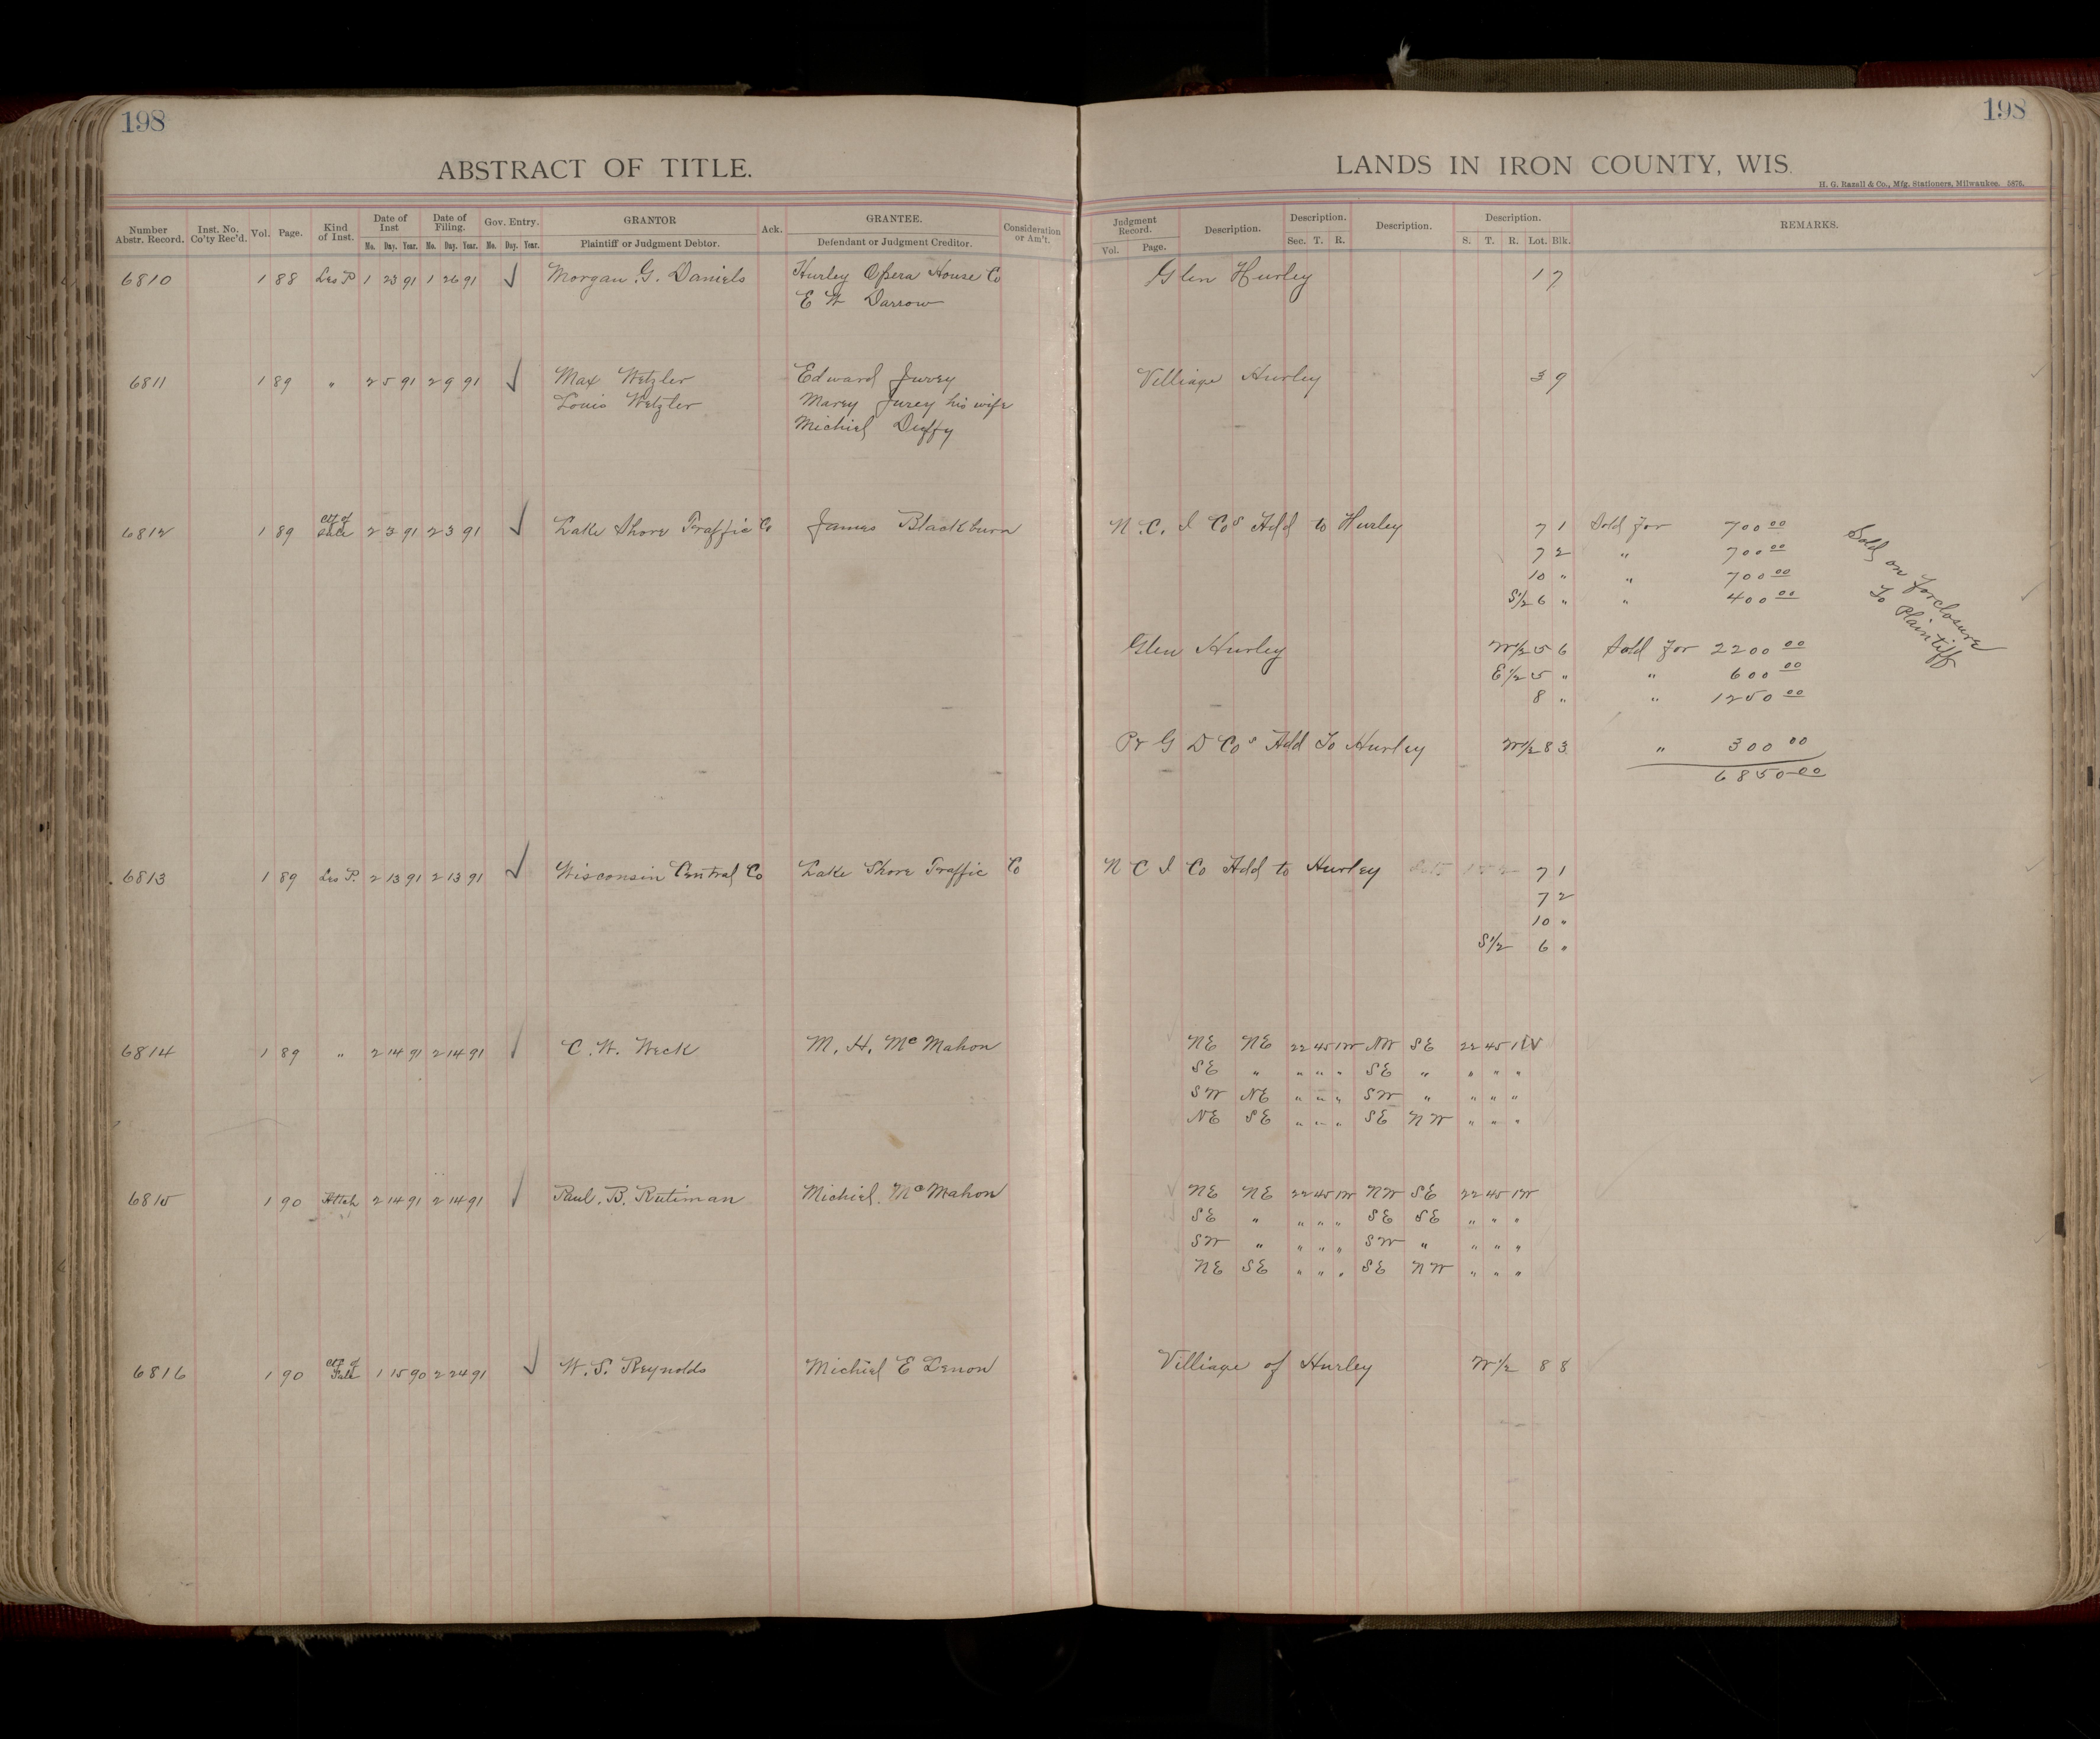 198
198
ABSTRACT OF TITLE.
LANDS IN IRON COUNTY, WIS.
H. G. Razall & Co., Mfg. Stationers, Milwaukee. 5876.
Number Abstr. Record. Inst. No. Co'ty Rec'd. Vol. Page. Kind of Inst. Date of Inst Date of Filing. Gov. Entry. GRANTOR Ack. GRANTEE. Consideration or Am't. Judgment Record. Description. Description. Description. Description. REMARKS.
Mo. Day. Year. Mo. Day. Year. Mo. Day. Year. Plaintiff or Judgment Debtor. Defendant or Judgment Creditor. Vol. Page. Sec. T. R. S. T. R. Lot. Blk.
6810 1 88 Les P 1 23 91 1 26 91 ✓ Morgan G. Daniels Hurley Opera House Co Glen Hurley 1 7
E W Darrow
6811 1 89 " 2 5 91 2 9 91 ✓ Max Wetzler Edward Jurey Villiage Hurley 3 9
Louis Wetzler Marey Jurey his wife
Michiel Duffy
6812 1 89 Ctf of Sale 2 3 91 2 3 91 ✓ Lake Shore Traffic Co James Blackburn N. C. I Cos Add to Hurley 7 1 Sold for 700 00
7 2 " 700 00
10 " " 700 00
S 1/2 6 " " 400 00
Sold on forclosure
To Plaintiff
Glen Hurley W 1/2 5 6 Sold for 2200 00
E 1/2 5 " " 600 00
8 " " 1250 00
Pr G D Cos Add To Hurley W 1/2 8 3 " 300 00
6850 00
6813 1 89 Les P. 2 13 91 2 13 91 ✓ Wisconsin Central Co Lake Shore Traffic Co N C I Co Add to Hurley 7 1
7 2
10 "
S 1/2 6 "
6814 1 89 " 2 14 91 2 14 91 C. W. Weck M. H. Mc Mahon NE NE 22 45 1W NW SE 22 45 1W
SE " " " " SE " " " "
SW NE " " " SW " " " "
NE SE " " " SE NW " " "
6815 1 90 Attch 2 14 91 2 14 91 Paul. B. Rutiman Michiel. Mc Mahon NE NE 22 45 1W NW SE 22 45 1W
SE " " " " SE SE " " "
SW " " " " SW " " " "
NE SE " " " SE NW " " "
6816 1 90 Ctf of Sale 1 15 90 2 24 91 ✓ W. S. Reynolds Michiel E Lenon Villiage of Hurley W 1/2 8 8